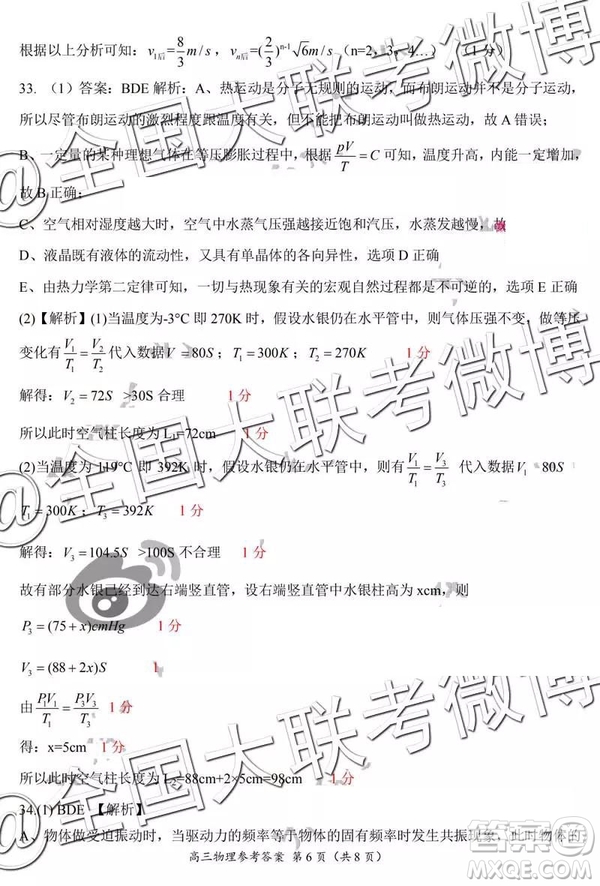 根据以上分析可知：v1后=8/3 m/s，vn后=(2/3)^(n-1)√6 m/s（n=2，3，4…）（1分）
33. （1）答案：BDE 解析：A、热运动是分子无规则的运动，而布朗运动并不是分子运动，
所以尽管布朗运动的激烈程度跟温度有关，但不能把布朗运动叫做热运动，故 A 错误；
B、一定量的某种理想气体在等压膨胀过程中，根据 pV/T=C 可知，温度升高，内能一定增加，
故 B 正确；
C、空气相对湿度越大时，空气中水蒸气压强越接近饱和汽压，水蒸发越慢，故
D、液晶既有液体的流动性，又具有单晶体的各向异性，选项 D 正确
E、由热力学第二定律可知，一切与热现象有关的宏观自然过程都是不可逆的，选项 E 正确
(2)【解析】(1)当温度为-3°C 即 270K 时，假设水银仍在水平管中，则气体压强不变，做等压
变化有 V1/T1=V2/T2 代入数据 V=80S；T1=300K；T2=270K 1 分
解得：V2=72S >30S 合理 1 分
所以此时空气柱长度为 L2=72cm 1 分
(2)当温度为 119°C 即 392K 时，假设水银仍在水平管中，则有 V1/T1=V3/T3 代入数据 V=80S
T1=300K；T3=392K 1 分
解得：V3=104.5S >100S 不合理 1 分
故有部分水银已经到达右端竖直管，设右端竖直管中水银柱高为 xcm，则
P3=(75+x)cmHg 1 分
V3=(88+2x)S 1
由 P1V1/T1=P3V3/T3 1 分
得：x=5cm 1 分
所以此时空气柱长度为 L3=88cm+2×5cm=98cm 1 分
34.(1) BDE 【解析】
A、物体做受迫振动时，当驱动力的频率等于物体的固有频率时发生共振现象，此时物体的
高三物理参考答案 第 6 页（共 8 页）
@全国大联考微博
@全国大联考微博